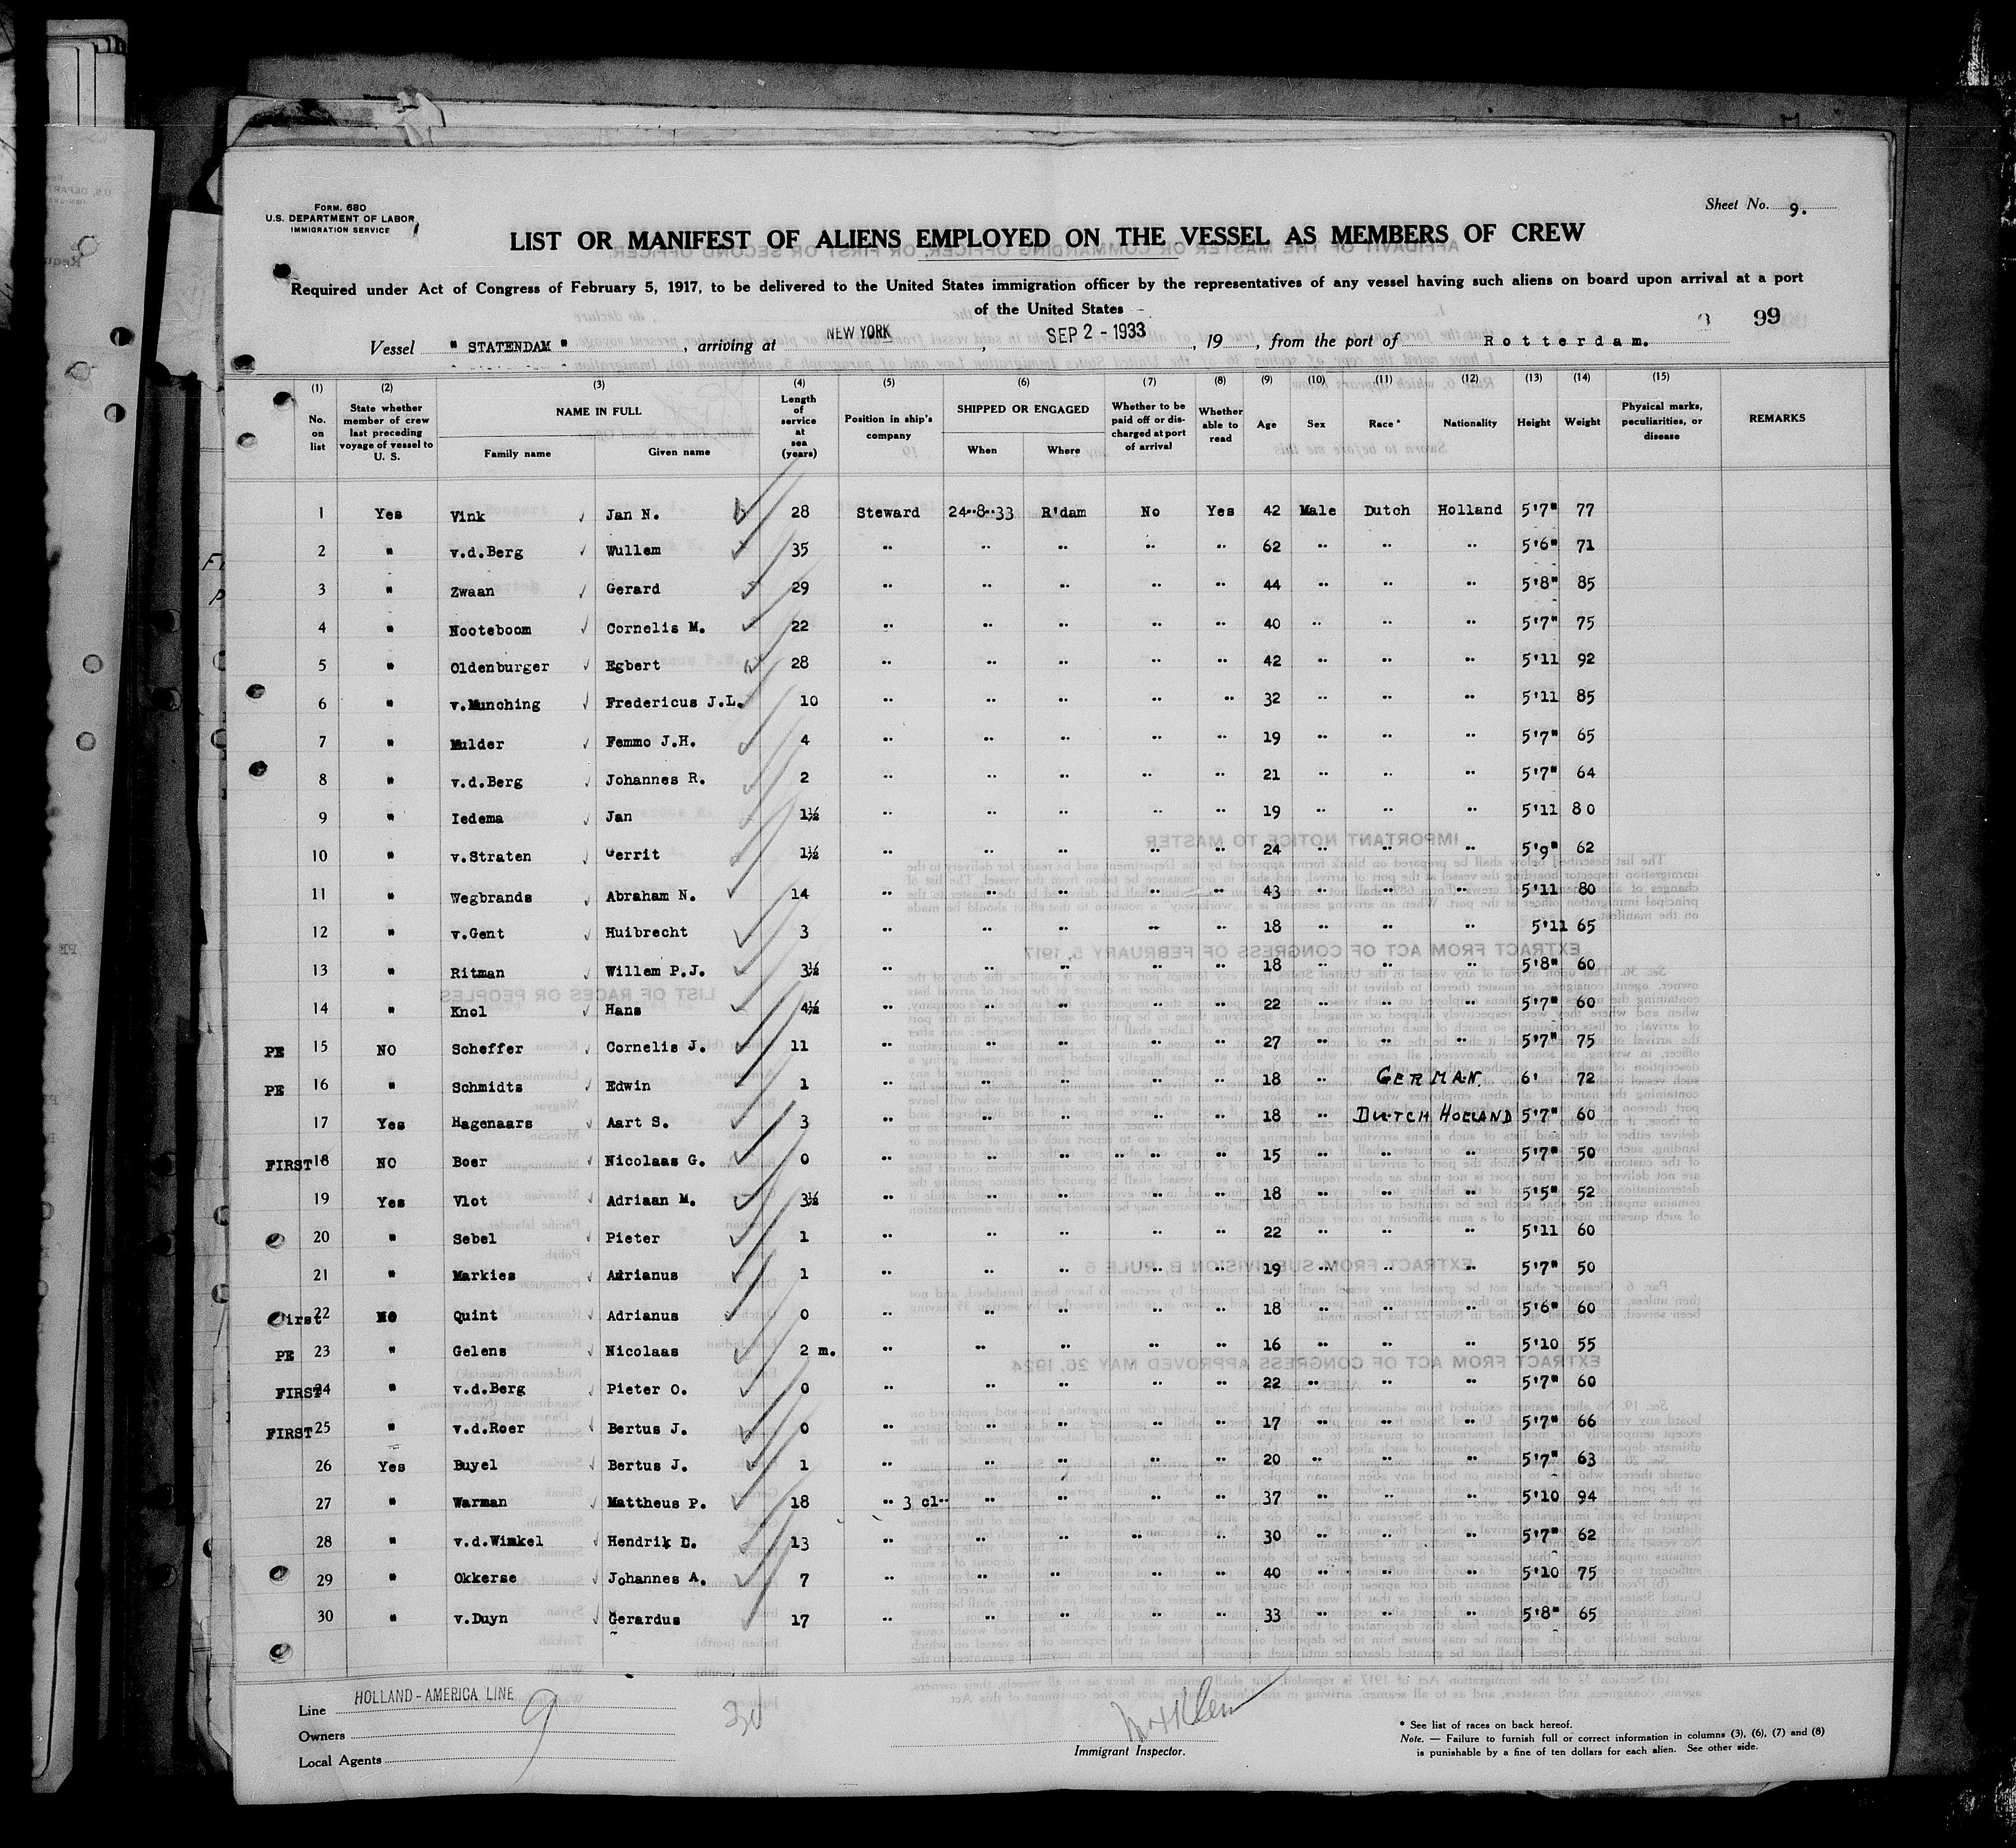 FORM. 680
U.S. DEPARTMENT OF LABOR
IMMIGRATION SERVICE
Sheet No. 9.
LIST OR MANIFEST OF ALIENS EMPLOYED ON THE VESSEL AS MEMBERS OF CREW
Required under Act of Congress of February 5, 1917, to be delivered to the United States immigration officer by the representatives of any vessel having such aliens on board upon arrival at a port
of the United States
99
Vessel " STATENDAM ", arriving at NEW YORK, SEP 2 - 1933, 19, from the port of Rotterdam.
(1) (2) (3) (4) (5) (6) (7) (8) (9) (10) (11) (12) (13) (14) (15)
No. on list | State whether member of crew last preceding voyage of vessel to U. S. | NAME IN FULL Family name Given name | Length of service at sea (years) | Position in ship's company | SHIPPED OR ENGAGED When Where | Whether to be paid off or discharged at port of arrival | Whether able to read | Age | Sex | Race * | Nationality | Height | Weight | Physical marks, peculiarities, or disease | REMARKS
1 Yes Vink Jan N. 28 Steward 24-8-33 R'dam No Yes 42 Male Dutch Holland 5'7" 77
2 " v.d.Berg Wullem 35 " " " " " 62 " " " 5'6" 71
3 " Zwaan Gerard 29 " " " " " 44 " " " 5'8" 85
4 " Nooteboom Cornelis M. 22 " " " " " 40 " " " 5'7" 75
5 " Oldenburger Egbert 28 " " " " " 42 " " " 5'11 92
6 " v.Munching Fredericus J.L. 10 " " " " " 32 " " " 5'11 85
7 " Mulder Femmo J.H. 4 " " " " " 19 " " " 5'7" 65
8 " v.d.Berg Johannes R. 2 " " " " " 21 " " " 5'7" 64
9 " Iedema Jan 1½ " " " " " 19 " " " 5'11 80
10 " v.Straten Gerrit 1½ " " " " " 24 " " " 5'9" 62
11 " Wegbrands Abraham N. 14 " " " " " 43 " " " 5'11 80
12 " v.Gent Huibrecht 3 " " " " " 18 " " " 5'11 65
13 " Ritman Willem P.J. 3½ " " " " " 18 " " " 5'8" 60
14 " Knol Hans 4½ " " " " " 22 " " " 5'7" 60
PE 15 NO Scheffer Cornelis J. 11 " " " " " 27 " " " 5'7" 75
PE 16 " Schmidts Edwin 1 " " " " " 18 " GERMAN. 6' 72
17 Yes Hagenaars Aart S. 3 " " " " " 18 " DUTCH HOLLAND 5'7" 60
FIRST 18 NO Boer Nicolaas G. 0 " " " " " 15 " " " 5'7" 50
19 Yes Vlot Adriaan M. 3½ " " " " " 18 " " " 5'5" 52
20 " Sebel Pieter 1 " " " " " 22 " " " 5'11 60
21 " Markies Adrianus 1 " " " " " 19 " " " 5'7" 50
First 22 NO Quint Adrianus 0 " " " " " 18 " " " 5'6" 60
PE 23 " Gelens Nicolaas 2 m. " " " " " 16 " " " 5'10 55
FIRST 24 " v.d.Berg Pieter O. 0 " " " " " 22 " " " 5'7" 60
FIRST 25 " v.d.Roer Bertus J. 0 " " " " " 17 " " " 5'7" 66
26 Yes Buyel Bertus J. 1 " " " " " 20 " " " 5'7" 63
27 " Warman Mattheus P. 18 " 3 cl " " " " 37 " " " 5'10 94
28 " v.d.Winkel Hendrik D. 13 " " " " " 30 " " " 5'7" 62
29 " Okkerse Johannes A. 7 " " " " " 40 " " " 5'10 75
30 " v.Duyn Gerardus 17 " " " " " 33 " " " 5'8" 65
Line HOLLAND-AMERICA LINE
Owners
Local Agents
9
30
Immigrant Inspector.
* See list of races on back hereof.
Note. — Failure to furnish full or correct information in columns (3), (6), (7) and (8)
is punishable by a fine of ten dollars for each alien. See other side.